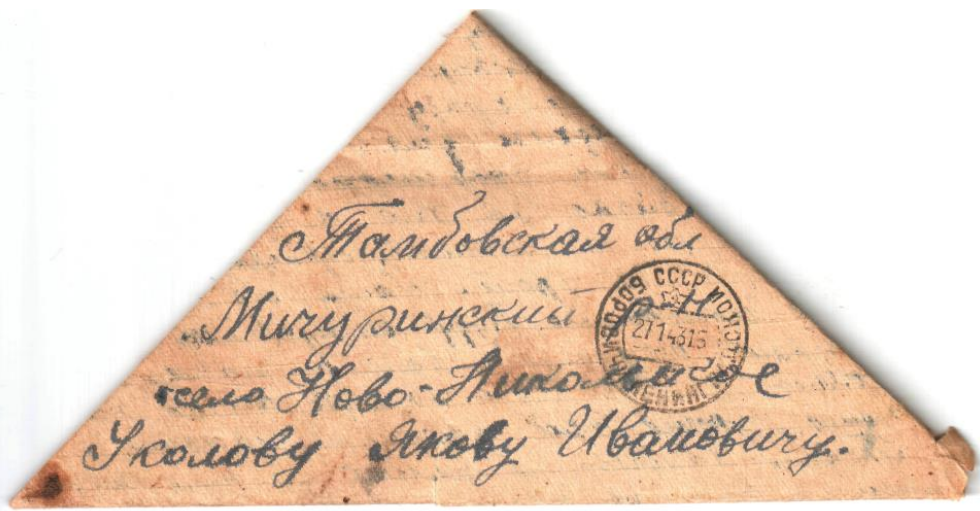 Тамбовская обл
Мичуринский р-н
село Ново-Никольское
Уколову Якову Ивановичу.
СССР
27 1 43 15